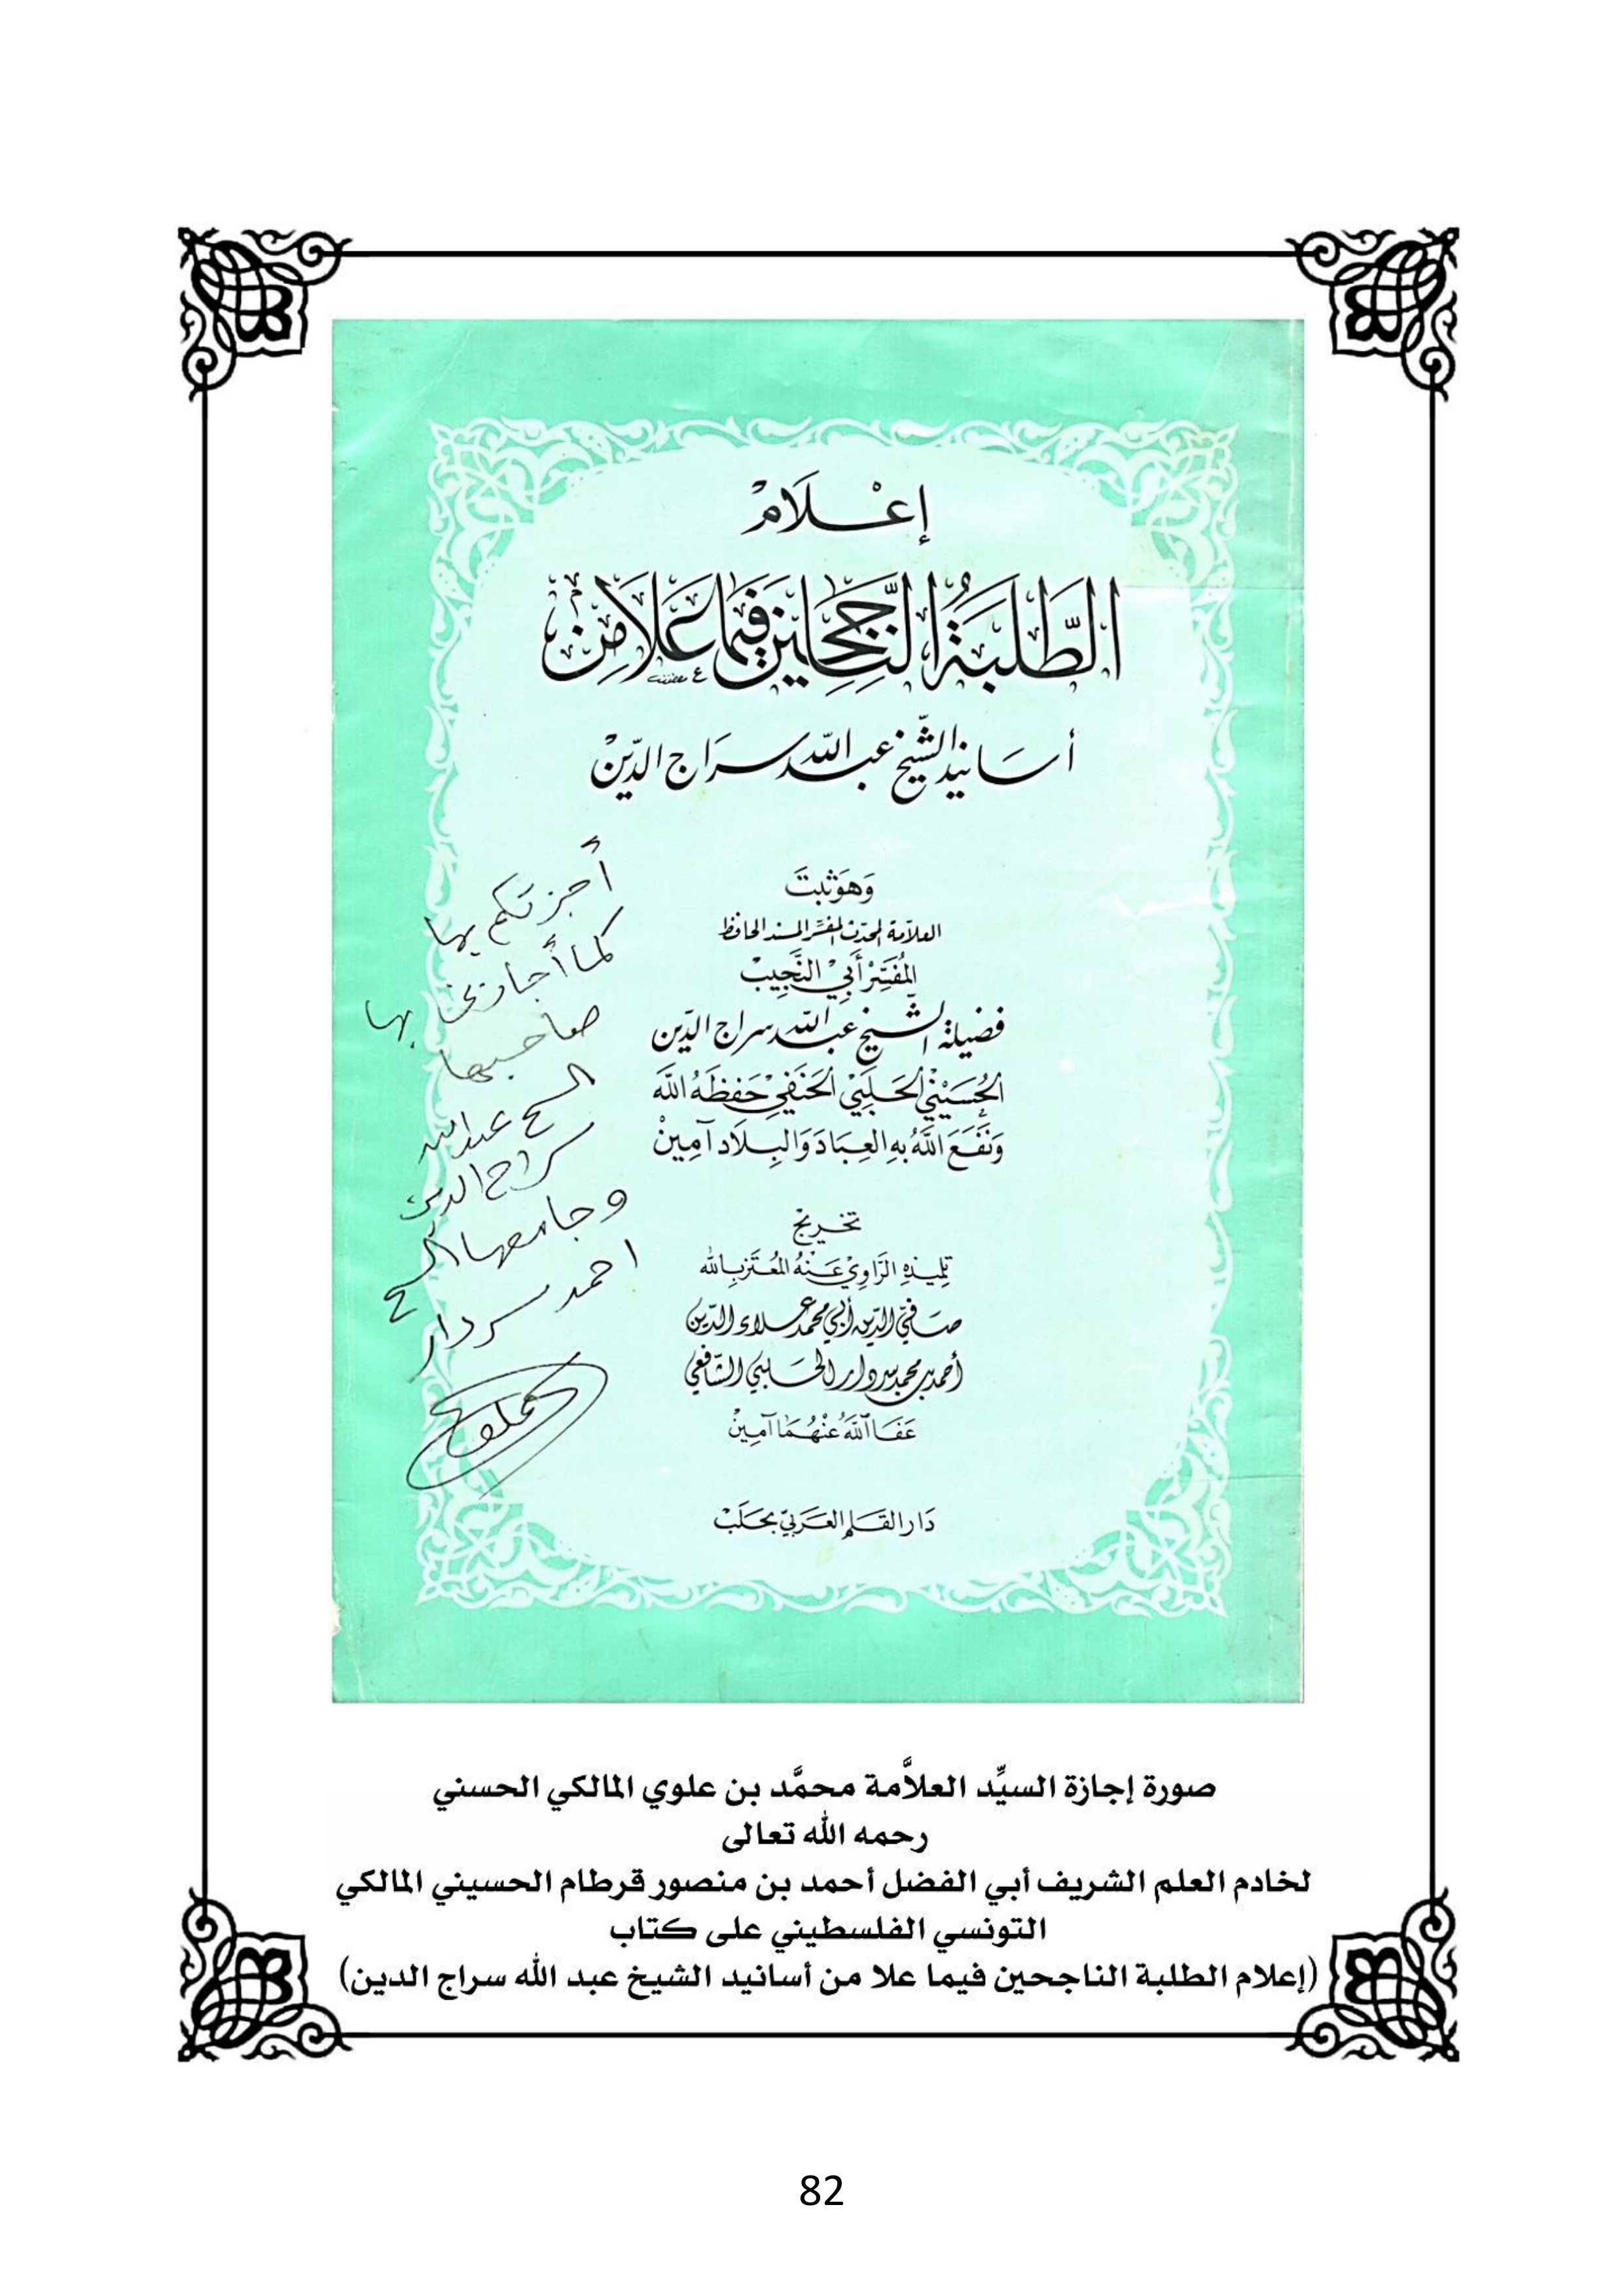 إِعْلَامُ
الطَّلَبَةُ النَّاجِحِين فِيمَا عَلَا مِن
أسَانيد الشّيخ عبد اللّه سرَاج الدّين
وَهوَ ثبتَ
العلاّمة المحدّث المفسّر المسند الحافظ
المُفَسِّرْ أَبيْ النَّجِيبْ
فضيلة الشّيخ عبد اللّه سراج الدّين
الحُسَيْنيْ الحَلَبيْ الحَنَفيْ حَفِظَهُ اللَّه
وَنَفَعَ اللَّهُ بهِ العِبَادَ وَالبِلَاد آمِينْ
تخريج
تلميذهِ الرَّاوِيْ عَنْهُ المُعْتَز باِللَّه
صَفيّ الدّين أبي محمد علاء الدّين
أحمد بن محمد سردار الحَلبي الشّافعي
عَفَا اللَّهُ عَنْهُمَا آمِينْ
دَار القَلم العَرَبيّ بحَلَبْ
أجزتكم بها
كما أجازني بها
صاحبها
الشيخ عبد الله
سراج الدين
وجامعها الشيخ
احمد سردار
صورة إجازة السيِّد العلاَّمة محمَّد بن علوي المالكي الحسني
رحمه الله تعالى
لخادم العلم الشريف أبي الفضل أحمد بن منصور قرطام الحسيني المالكي
التونسي الفلسطيني على كتاب
(إعلام الطلبة الناجحين فيما علا من أسانيد الشيخ عبد الله سراج الدين)
82